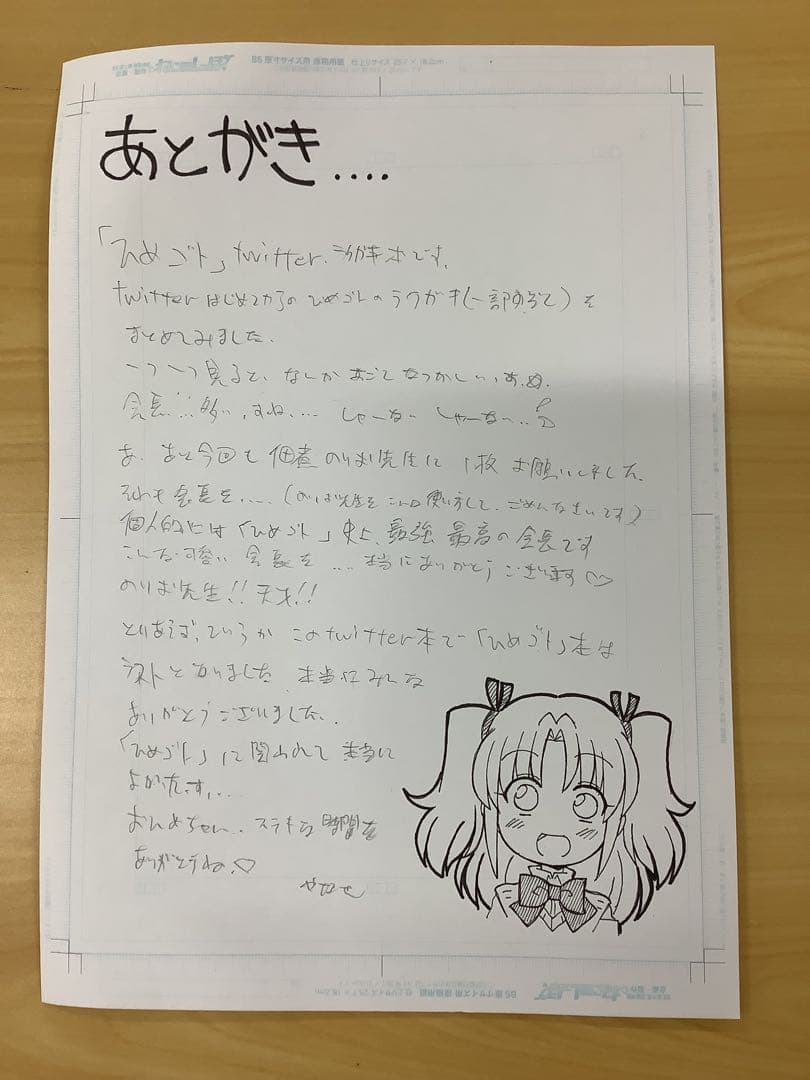 あとがき....
「ひめゴト」twitter.ラクガキ本です。
twitterはじめてからの ひめゴトのラクガキ(一部ですけど)を
まとめてみました.
一つ一つ見ると、なんか すごく なつかしいっすね.
会長!!多いすね.... しゃーない しゃーない..
あ. あと今回も 佃煮のりお先生に 1枚 お願いしました.
それも会長を.....(のりお先生を こんな使い方して、ごめんなさいです)
個人的には「ひめゴト」史上、最強 最高の会長です
こんな可愛い 会長を .... 本当にありがとうございます♡
のりお先生!!天才!!
とりあえず、というか このtwitter本で「ひめゴト」本は
ラストとなりました 本当にみんな
ありがとうございました.
「ひめゴト」に関われて 本当に
よかったです...
ステキな時間を
ありがとうね.♡
B5 原寸サイズ用 原稿用紙